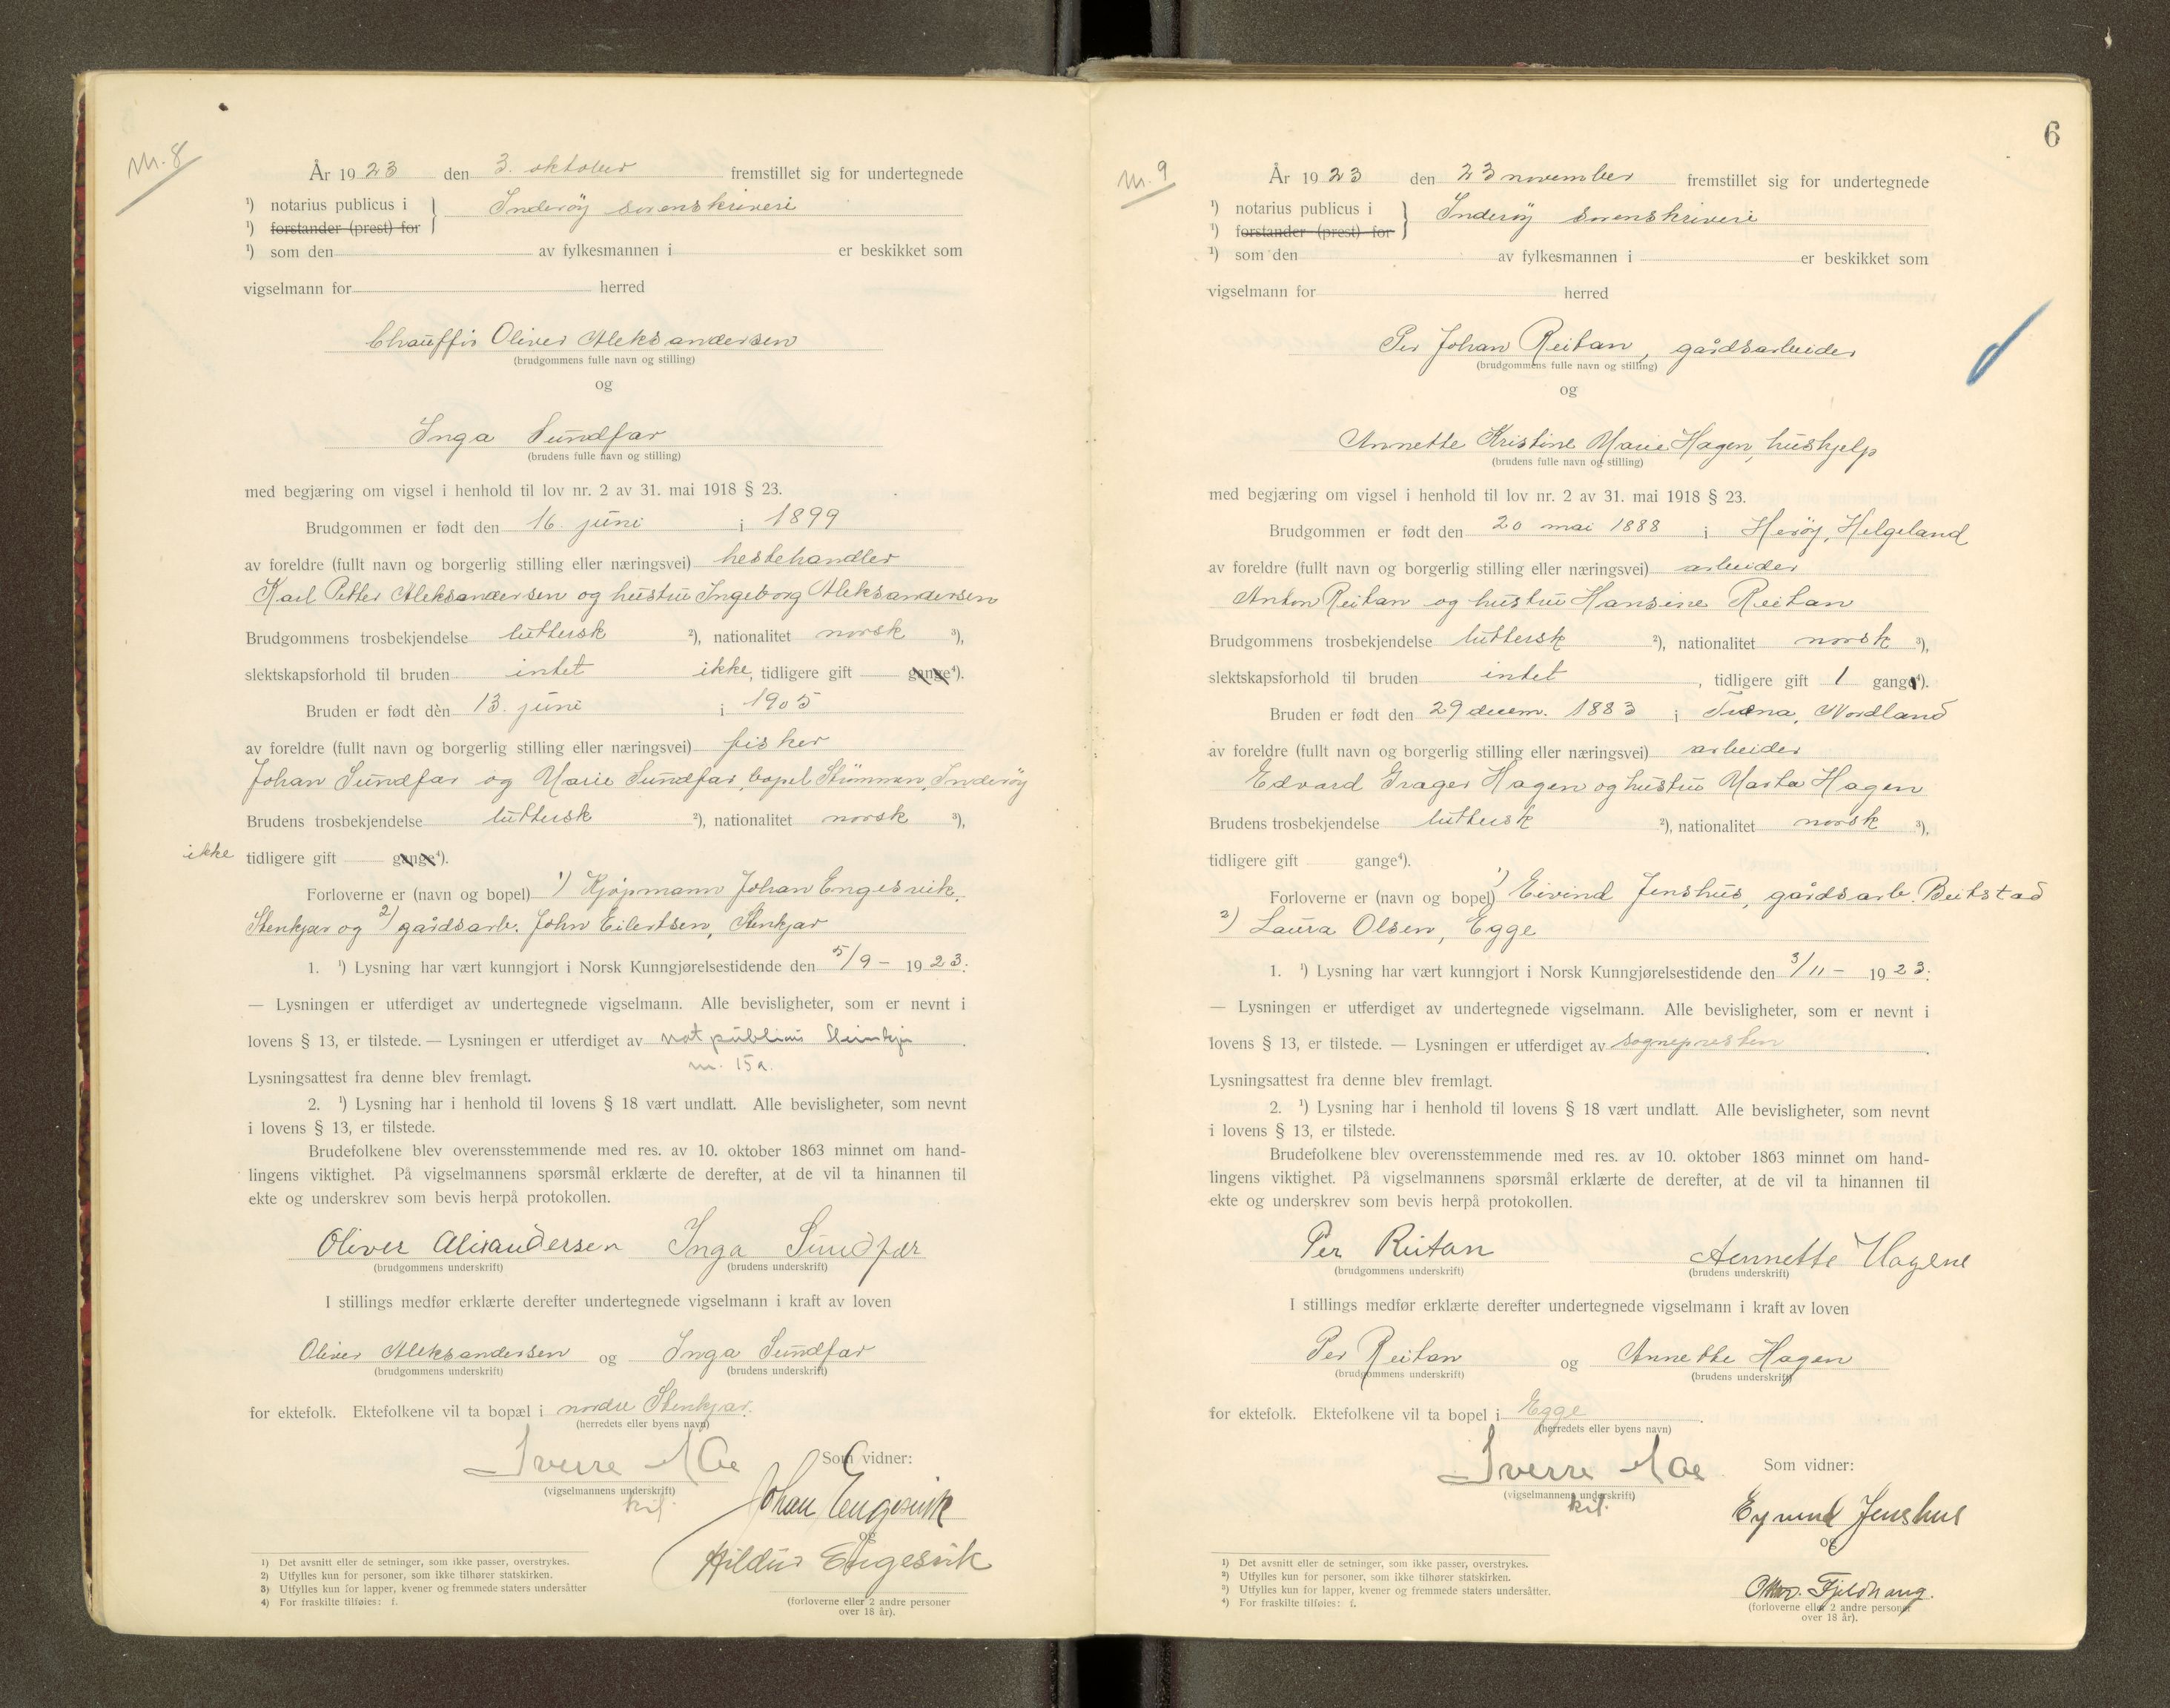 m. 8
År 1923 den 3. oktober fremstillet sig for undertegnede
¹) notarius publicus i
¹) forstander (prest) for
Inderöy sorenskriveri
¹) som den av fylkesmannen i er beskikket som
vigselmann for herred
Chauffør Oliver Aleksandersen
(brudgommens fulle navn og stilling)
og
Inga Sundfar
(brudens fulle navn og stilling)
med begjæring om vigsel i henhold til lov nr. 2 av 31. mai 1918 § 23.
Brudgommen er født den 16. juni i 1899
av foreldre (fullt navn og borgerlig stilling eller næringsvei) hestehandler
Karl Petter Aleksandersen og hustru Ingeborg Aleksandersen
Brudgommens trosbekjendelse luthersk ²), nationalitet norsk ³),
slektskapsforhold til bruden intet ikke, tidligere gift gange⁴).
Bruden er født den 13. juni i 1905
av foreldre (fullt navn og borgerlig stilling eller næringsvei) fisker
Johan Sundfar og Marie Sundfar, bopel Strömmen, Inderöy
Brudens trosbekjendelse luthersk ²), nationalitet norsk ³),
ikke tidligere gift gange⁴).
Forloverne er (navn og bopel) 1) Kjöpmann Johan Engesvik,
Stenkjær og 2) gårdsarb. John Eilertsen, Stenkjær
1. ¹) Lysning har vært kunngjort i Norsk Kunngjørelsestidende den 5/9 - 1923.
— Lysningen er utferdiget av undertegnede vigselmann. Alle bevisligheter, som er nevnt i
lovens § 13, er tilstede. — Lysningen er utferdiget av not publicus Steinkjer
m. 15a.
Lysningsattest fra denne blev fremlagt.
2. ¹) Lysning har i henhold til lovens § 18 vært undlatt. Alle bevisligheter, som nevnt
i lovens § 13, er tilstede.
Brudefolkene blev overensstemmende med res. av 10. oktober 1863 minnet om hand-
lingens viktighet. På vigselmannens spørsmål erklærte de derefter, at de vil ta hinannen til
ekte og underskrev som bevis herpå protokollen.
Oliver Alexandersen Inga Sundfær
(brudgommens underskrift) (brudens underskrift)
I stillings medfør erklærte derefter undertegnede vigselmann i kraft av loven
Oliver Aleksandersen og Inga Sundfar
(brudgommens underskrift) (brudens underskrift)
for ektefolk. Ektefolkene vil ta bopæl i nordre Stenkjær.
(herredets eller byens navn)
Sverre Moe
(vigselmannens underskrift)
Som vidner:
Johan Engesvik
og
Hildur Engesvik
(forloverne eller 2 andre personer
over 18 år).
1) Det avsnitt eller de setninger, som ikke passer, overstrykes.
2) Utfylles kun for personer, som ikke tilhører statskirken.
3) Utfylles kun for lapper, kvener og fremmede staters undersåtter
4) For fraskilte tilføies: f.
6
m. 9
År 1923 den 23 november fremstillet sig for undertegnede
¹) notarius publicus i
¹) forstander (prest) for
Inderöy sorenskriveri
¹) som den av fylkesmannen i er beskikket som
vigselmann for herred
Per Johan Reitan, gårdsarbeider
(brudgommens fulle navn og stilling)
og
Annette Kristine Marie Hagen, hushjelp
(brudens fulle navn og stilling)
med begjæring om vigsel i henhold til lov nr. 2 av 31. mai 1918 § 23.
Brudgommen er født den 20 mai 1888 i Heröy, Helgeland
av foreldre (fullt navn og borgerlig stilling eller næringsvei) arbeider
Anton Reitan og hustru Hansine Reitan
Brudgommens trosbekjendelse luthersk ²), nationalitet norsk ³),
slektskapsforhold til bruden intet, tidligere gift 1 gang⁴).
Bruden er født den 29 decem. 1883 i Træna, Nordland
av foreldre (fullt navn og borgerlig stilling eller næringsvei) arbeider
Edvard Hagen og hustru Marta Hagen
Brudens trosbekjendelse luthersk ²), nationalitet norsk ³),
tidligere gift gange⁴).
Forloverne er (navn og bopel) 1) Eivind Jenshus, gårdsarb. Beitstad
2) Laura Olsen, Egge
1. ¹) Lysning har vært kunngjort i Norsk Kunngjørelsestidende den 3/11 - 1923.
— Lysningen er utferdiget av undertegnede vigselmann. Alle bevisligheter, som er nevnt i
lovens § 13, er tilstede. — Lysningen er utferdiget av sognepresten.
Lysningsattest fra denne blev fremlagt.
2. ¹) Lysning har i henhold til lovens § 18 vært undlatt. Alle bevisligheter, som nevnt
i lovens § 13, er tilstede.
Brudefolkene blev overensstemmende med res. av 10. oktober 1863 minnet om hand-
lingens viktighet. På vigselmannens spørsmål erklærte de derefter, at de vil ta hinannen til
ekte og underskrev som bevis herpå protokollen.
Per Reitan Annette Hagene
(brudgommens underskrift) (brudens underskrift)
I stillings medfør erklærte derefter undertegnede vigselmann i kraft av loven
Per Reitan og Annette Hagen
(brudgommens underskrift) (brudens underskrift)
for ektefolk. Ektefolkene vil ta bopel i Egge.
(herredets eller byens navn)
Sverre Moe
(vigselmannens underskrift)
Som vidner:
Eyvind Jenshus
og
Fjeldhaug.
(forloverne eller 2 andre personer
over 18 år).
¹) Det avsnitt eller de setninger, som ikke passer, overstrykes.
²) Utfylles kun for personer, som ikke tilhører statskirken.
³) Utfylles kun for lapper, kvener og fremmede staters undersåtter.
⁴) For fraskilte tilføies: f.